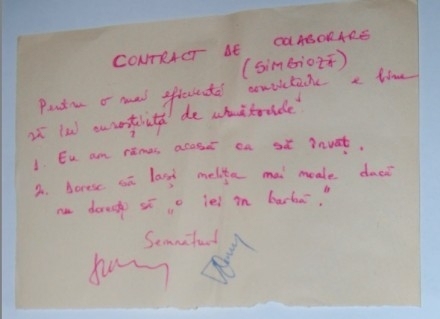 CONTRACT DE COLABORARE
(SIMBIOZĂ)
Pentru o mai eficientă conviețuire e bine
să iei cunoștință de următoarele:
1. Eu am rămas acasă ca să învăț.
2. Doresc să lași melița mai moale dacă
nu dorești să „o iei în barbă."
Semnături